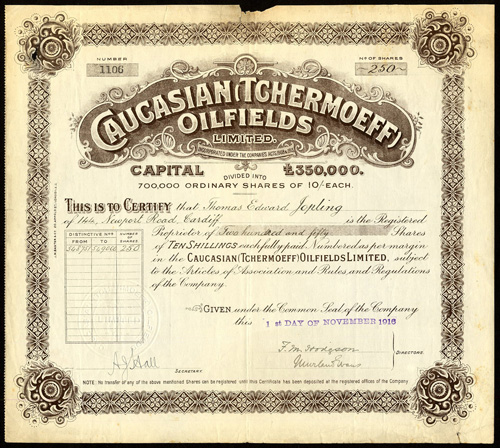 NUMBER
1106
Nº OF SHARES
250
CAUCASIAN (TCHERMOEFF)
OILFIELDS
LIMITED.
INCORPORATED UNDER THE COMPANIES ACTS
CAPITAL £350,000.
DIVIDED INTO
700,000 ORDINARY SHARES OF 10/- EACH.
THIS IS TO CERTIFY that Thomas Edward Jopling
of Newport Road, Cardiff is the Registered
Proprietor of Two hundred and fifty Shares
of TEN SHILLINGS each fully paid Numbered as per margin
in the CAUCASIAN (TCHERMOEFF) OILFIELDS LIMITED, subject
to the Articles of Association and Rules and Regulations
of the Company.
DISTINCTIVE Nºs
FROM TO
NUMBER OF SHARES
250
GIVEN under the Common Seal of the Company
this 1st DAY OF NOVEMBER 1916
F. M. Hodgson
DIRECTORS.
Hall
SECRETARY
NOTE: No transfer of any of the above mentioned Shares can be registered until this Certificate has been deposited at the registered offices of the Company